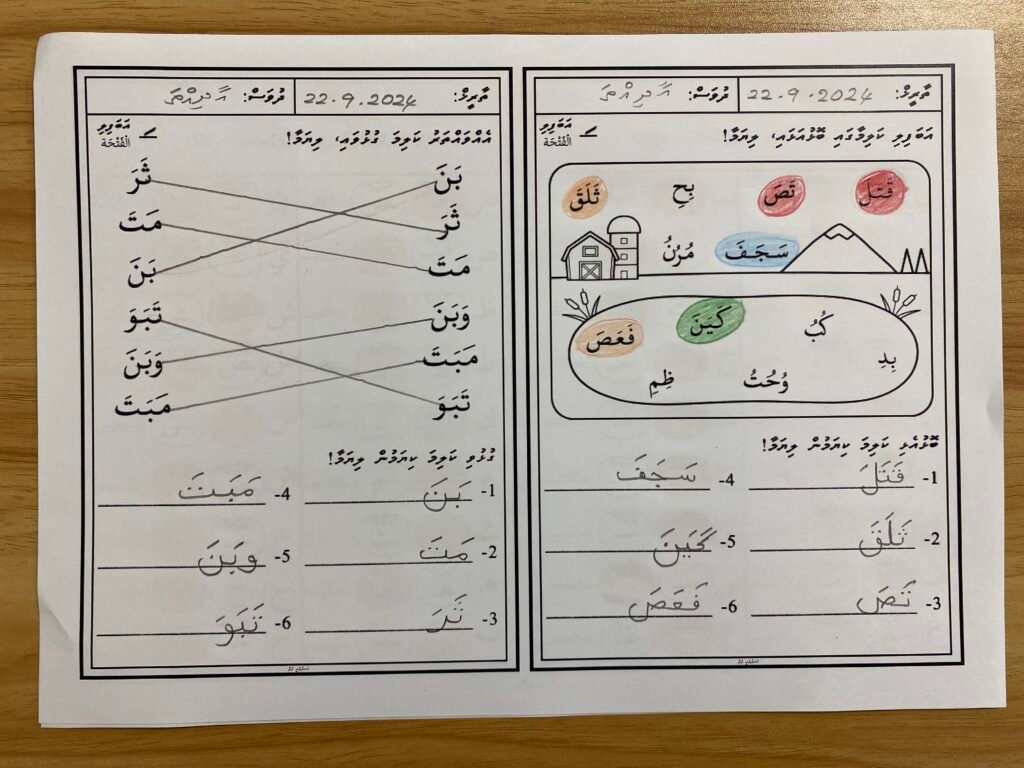 ތާރީޚް: 22.9.2024 ދުވަސް: އާދިއްތަ
އަބަފިލި ކަލިމާގައި ބޮޅުއަޅައި، ލިޔަމާ!
އަބަފިލި
الْفَتْحَة
قَتَلَ تَصَ بِحِ ثَلَقَ
سَجَفَ مُرُنُ
كَيَنَ
كُبُ فَعَصَ
بِدِ
وُحُتُ ظِمِ
ބޮޅުއެޅި ކަލިމަ ކިޔަމުން ލިޔަމާ!
1- قَتَلَ 4- سَجَفَ
2- ثَلَقَ 5- كَيَنَ
3- تَصَ 6- فَعَصَ
ތާރީޚް: 22.9.2024 ދުވަސް: އާދިއްތަ
އެއްވައްތަރު ކަލިމަ ގުޅުވައި، ލިޔަމާ!
އަބަފިލި
الْفَتْحَة
بَنَ ثَرَ
ثَرَ مَتَ
مَتَ بَنَ
وَبَنَ تَبَوَ
مَبَتَ وَبَنَ
تَبَوَ مَبَتَ
ގުޅުވި ކަލިމަ ކިޔަމުން ލިޔަމާ!
1- بَنَ 4- مَبَتَ
2- مَتَ 5- وَبَنَ
3- ثَرَ 6- تَبَوَ